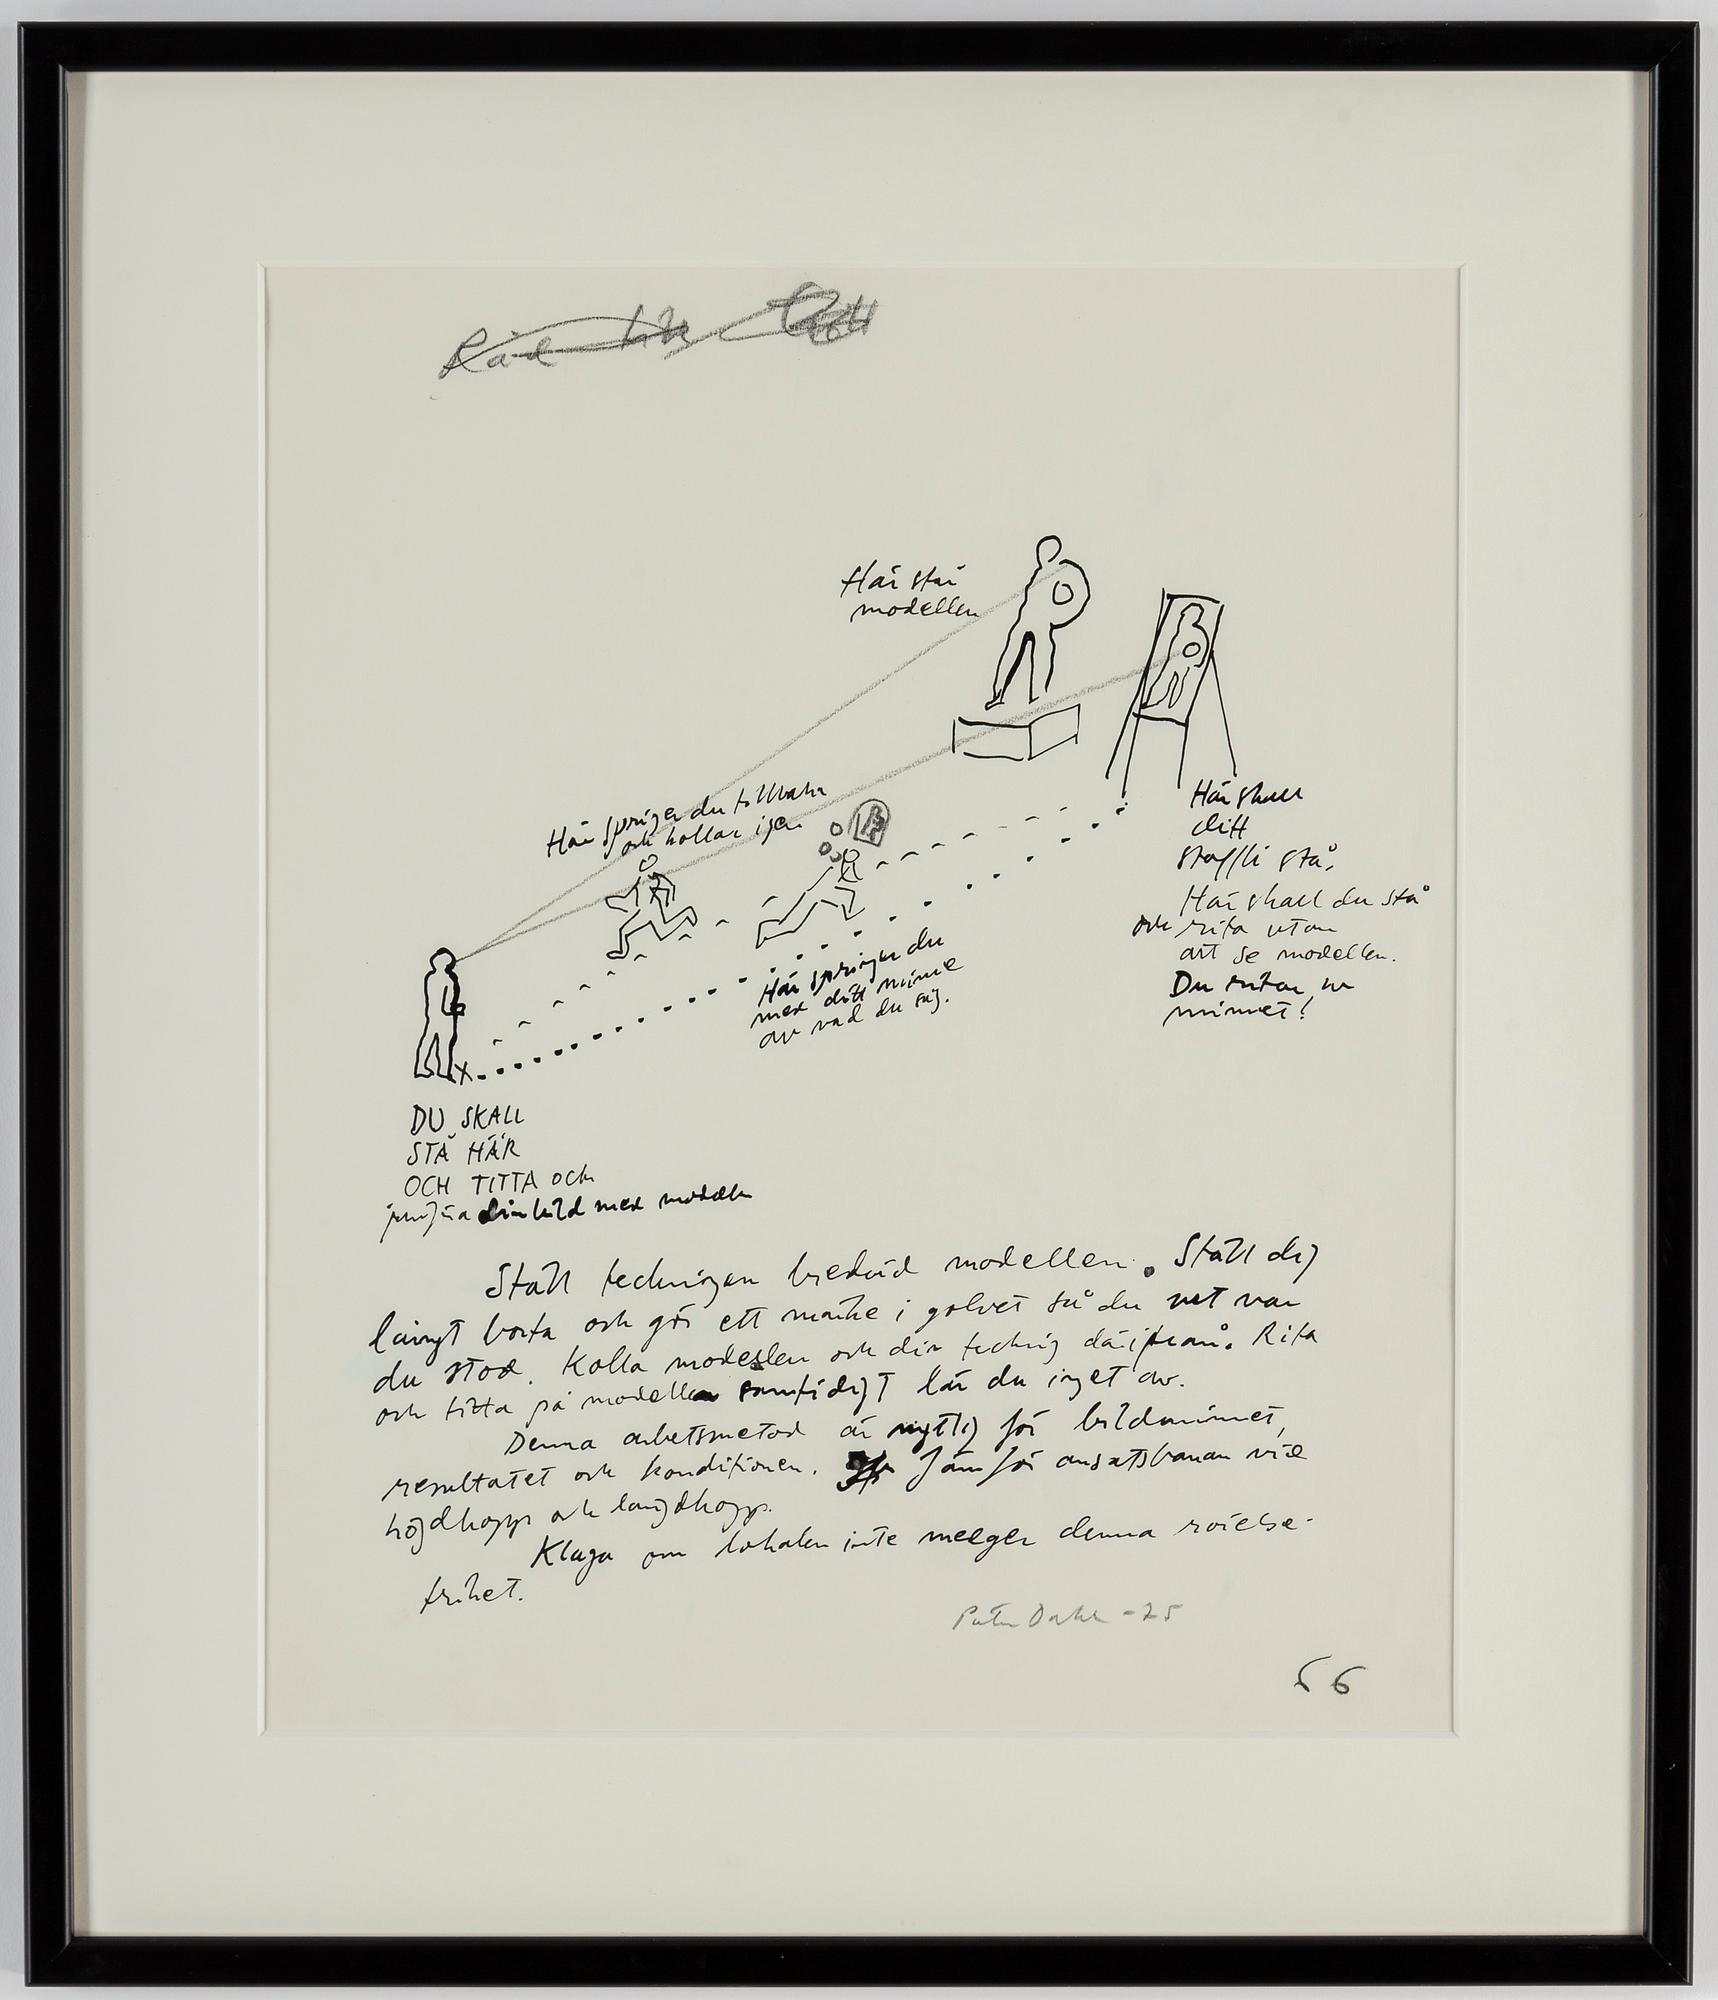 Råd till
Här står
modellen
Här springer du tillbaka
och kollar igen
Här skall
ditt
staffli stå.
Här skall du stå
och rita utan
att se modellen.
Du ritar ur
minnet!
Här springer du
med ditt minne
av vad du såg.
X
DU SKALL
STÅ HÄR
OCH TITTA och
jämföra din bild med modellen
Ställ teckningen bredvid modellen. Ställ dig
långt borta och gör ett märke i golvet så du vet var
du stod. Kolla modellen och din teckning därifrån. Rita
och titta på modellen samtidigt lär du inget av.
Denna arbetsmetod är nyttig för bildminnet,
resultatet och konditionen. Jämför ansatsbanan vid
höjdhopp och längdhopp.
Klaga om lokalen inte medger denna rörelse-
frihet.
Peter Dahl -75
66